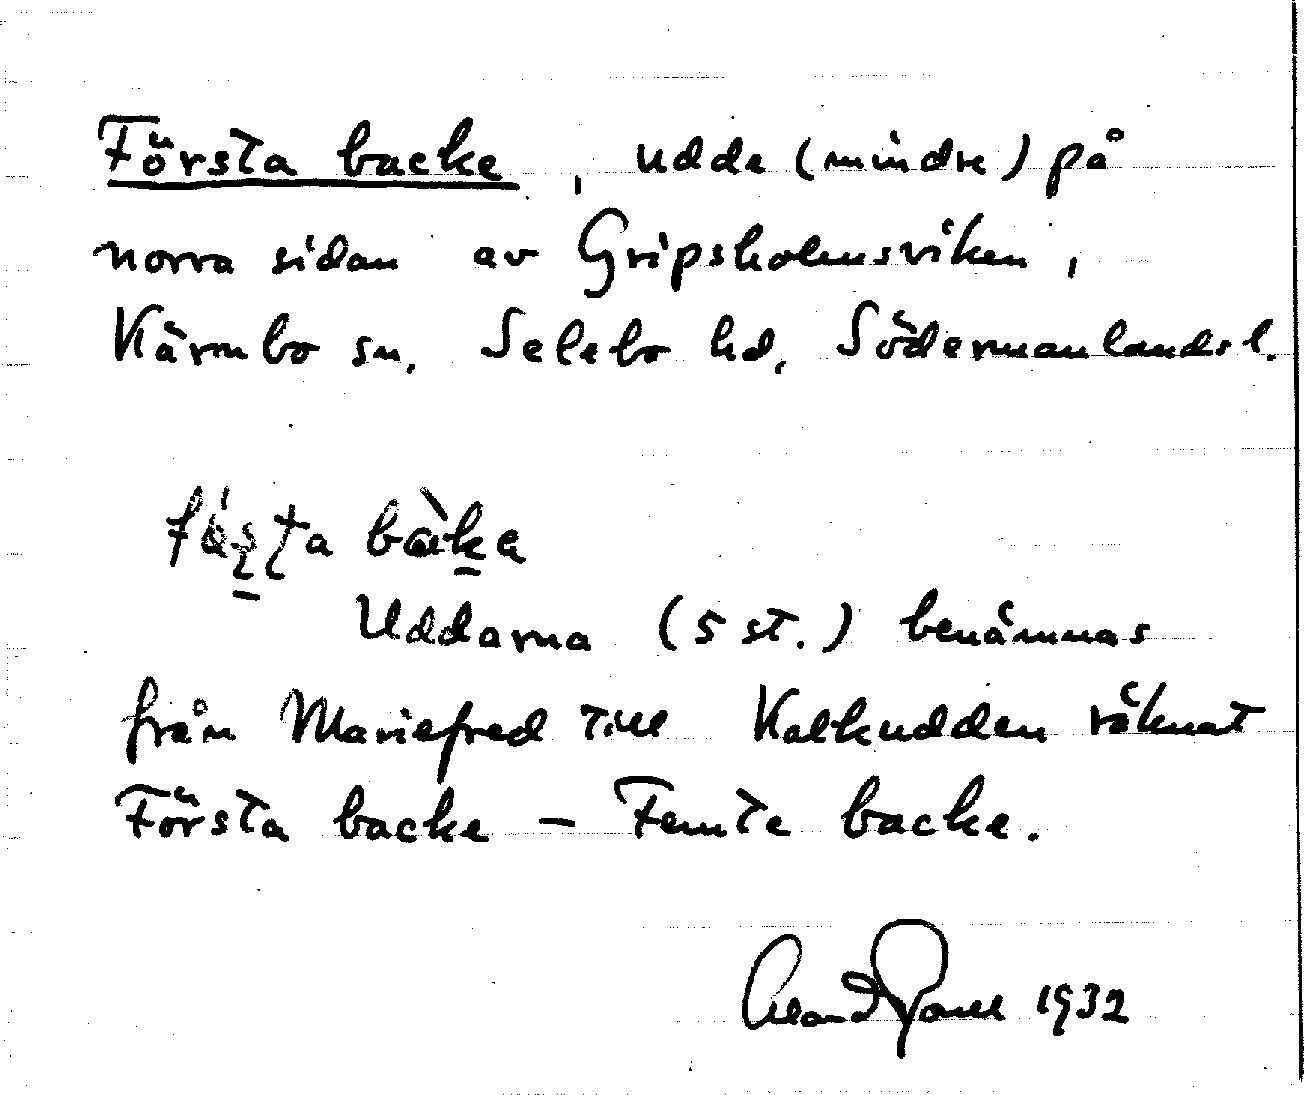 Första backe, udde (mindre) på
norra sidan av Gripsholmsviken,
Kärnbo sn, Selebo hd, Södermanlands l.
Uddarna (5 st.) benämnas
från Mariefred till Kalkudden räknat
Första backe – Femte backe.
1932